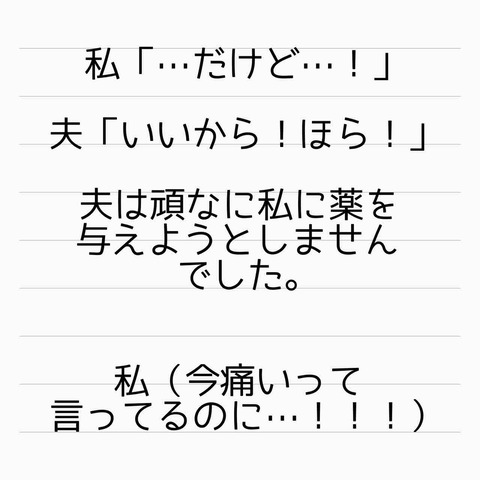 私「…だけど…！」
夫「いいから！ほら！」
夫は頑なに私に薬を
与えようとしません
でした。
私（今痛いって
言ってるのに…！！！）